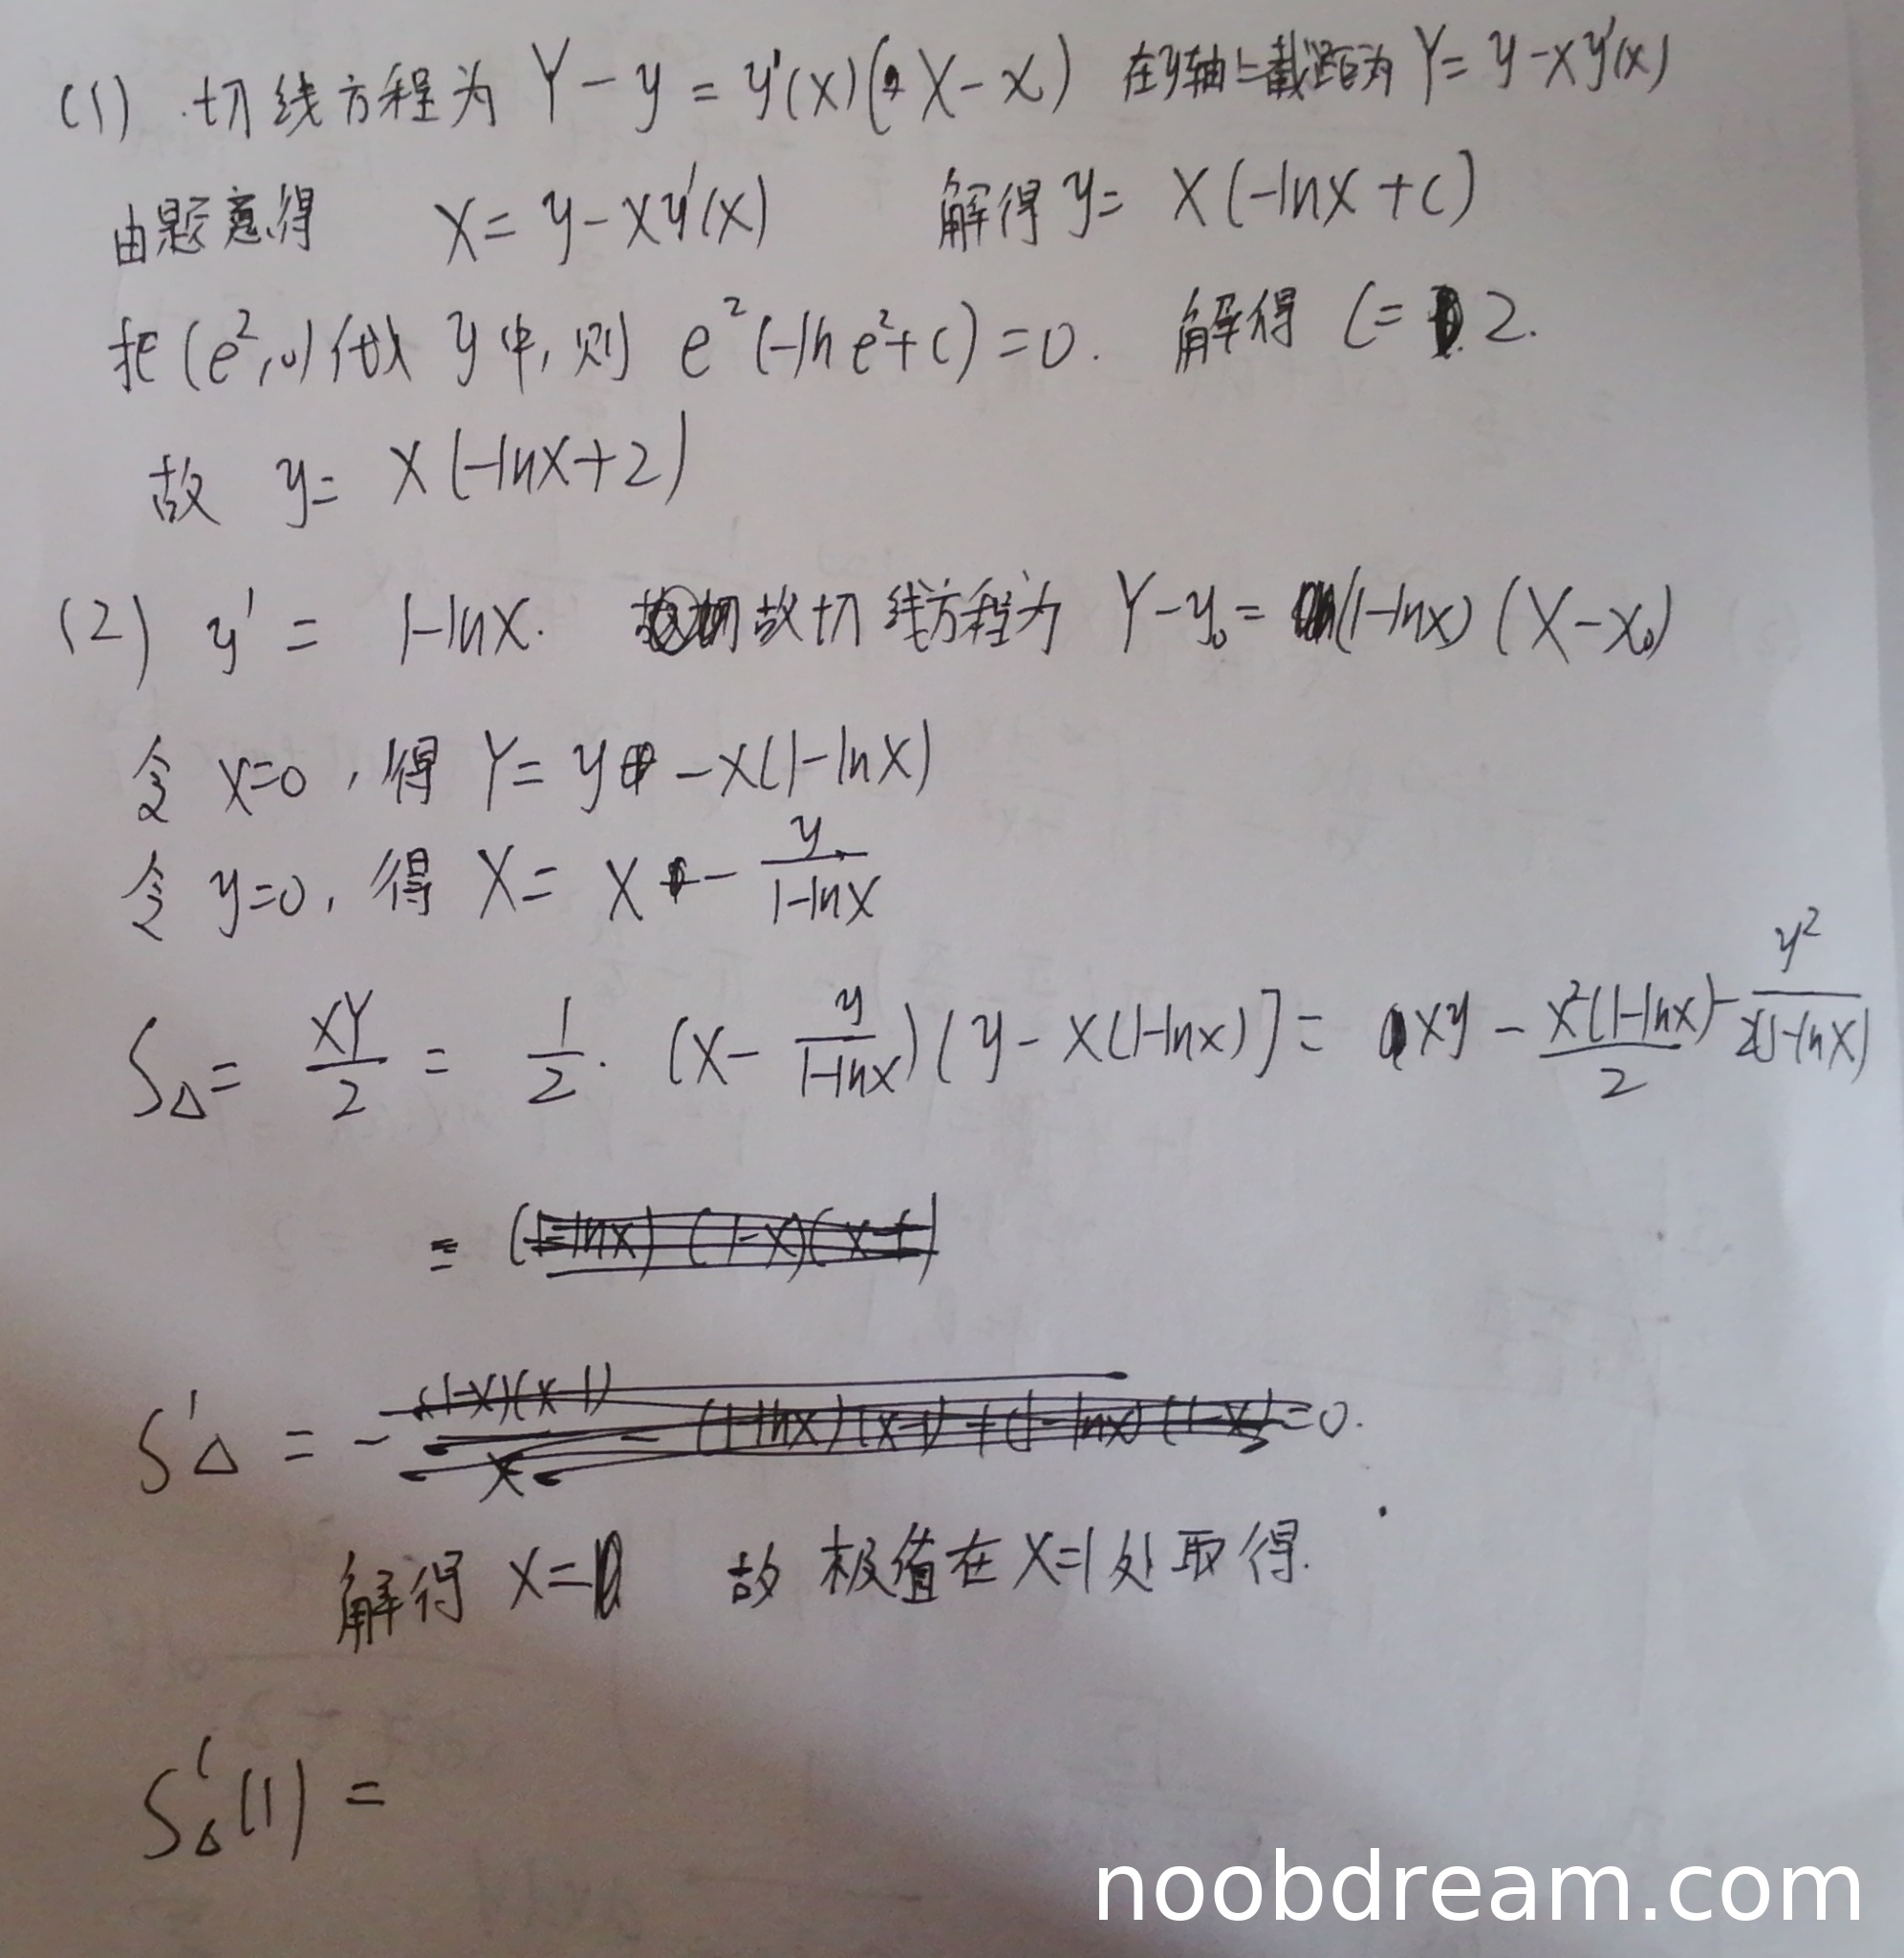 (1) 切线方程为 Y-y=y'(x)(X-x) 在y轴上截距为 Y=y-xy'(x)
由题意得 x=y-xy'(x) 解得 y=x(-lnx+c)
把(e²,0)代入y中,则 e²(-lne²+c)=0. 解得 C=2.
故 y=x(-lnx+2)
(2) y'=1-lnx. 故切线方程为 Y-y₀=(1-lnx)(X-x₀)
令 x=0,得 Y=y-x(1-lnx)
令 y=0,得 X=x-y/(1-lnx)
S△=XY/2=1/2·(x-y/(1-lnx))(y-x(1-lnx)]=xy-x²(1-lnx)/2-y²/2(1-lnx)
=
S'△=- =0.
解得 x=1 故极值在x=1处取得.
S'△(1)=
noobdream.com